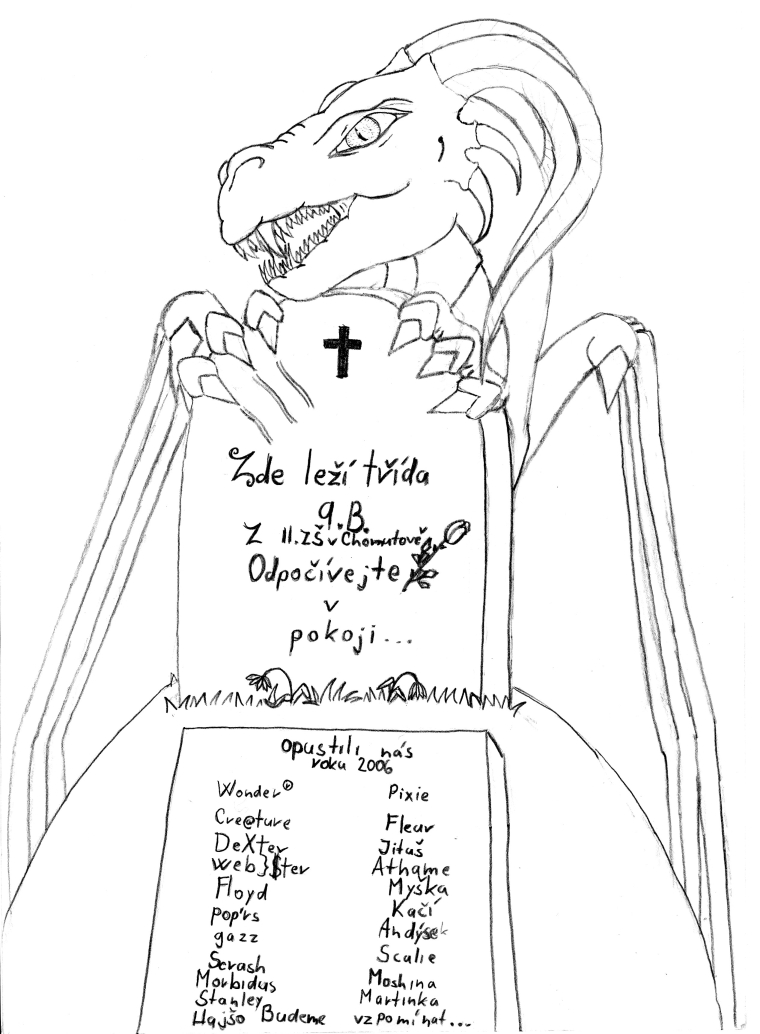 Zde leží třída
9.B.
Z II.ZŠ v Chomutově
Odpočívejte
v
pokoji...
opustili nás
roku 2006
Wonder® Pixie
Cre@ture Fleur
DeXter Jituš
web}$ter Athame
Floyd Myška
pop'rs Kačí
gazz Andýsek
Scrash Scalie
Morbidus Moshina
Stanley Martinka
Hajšo Budeme vzpomínat...